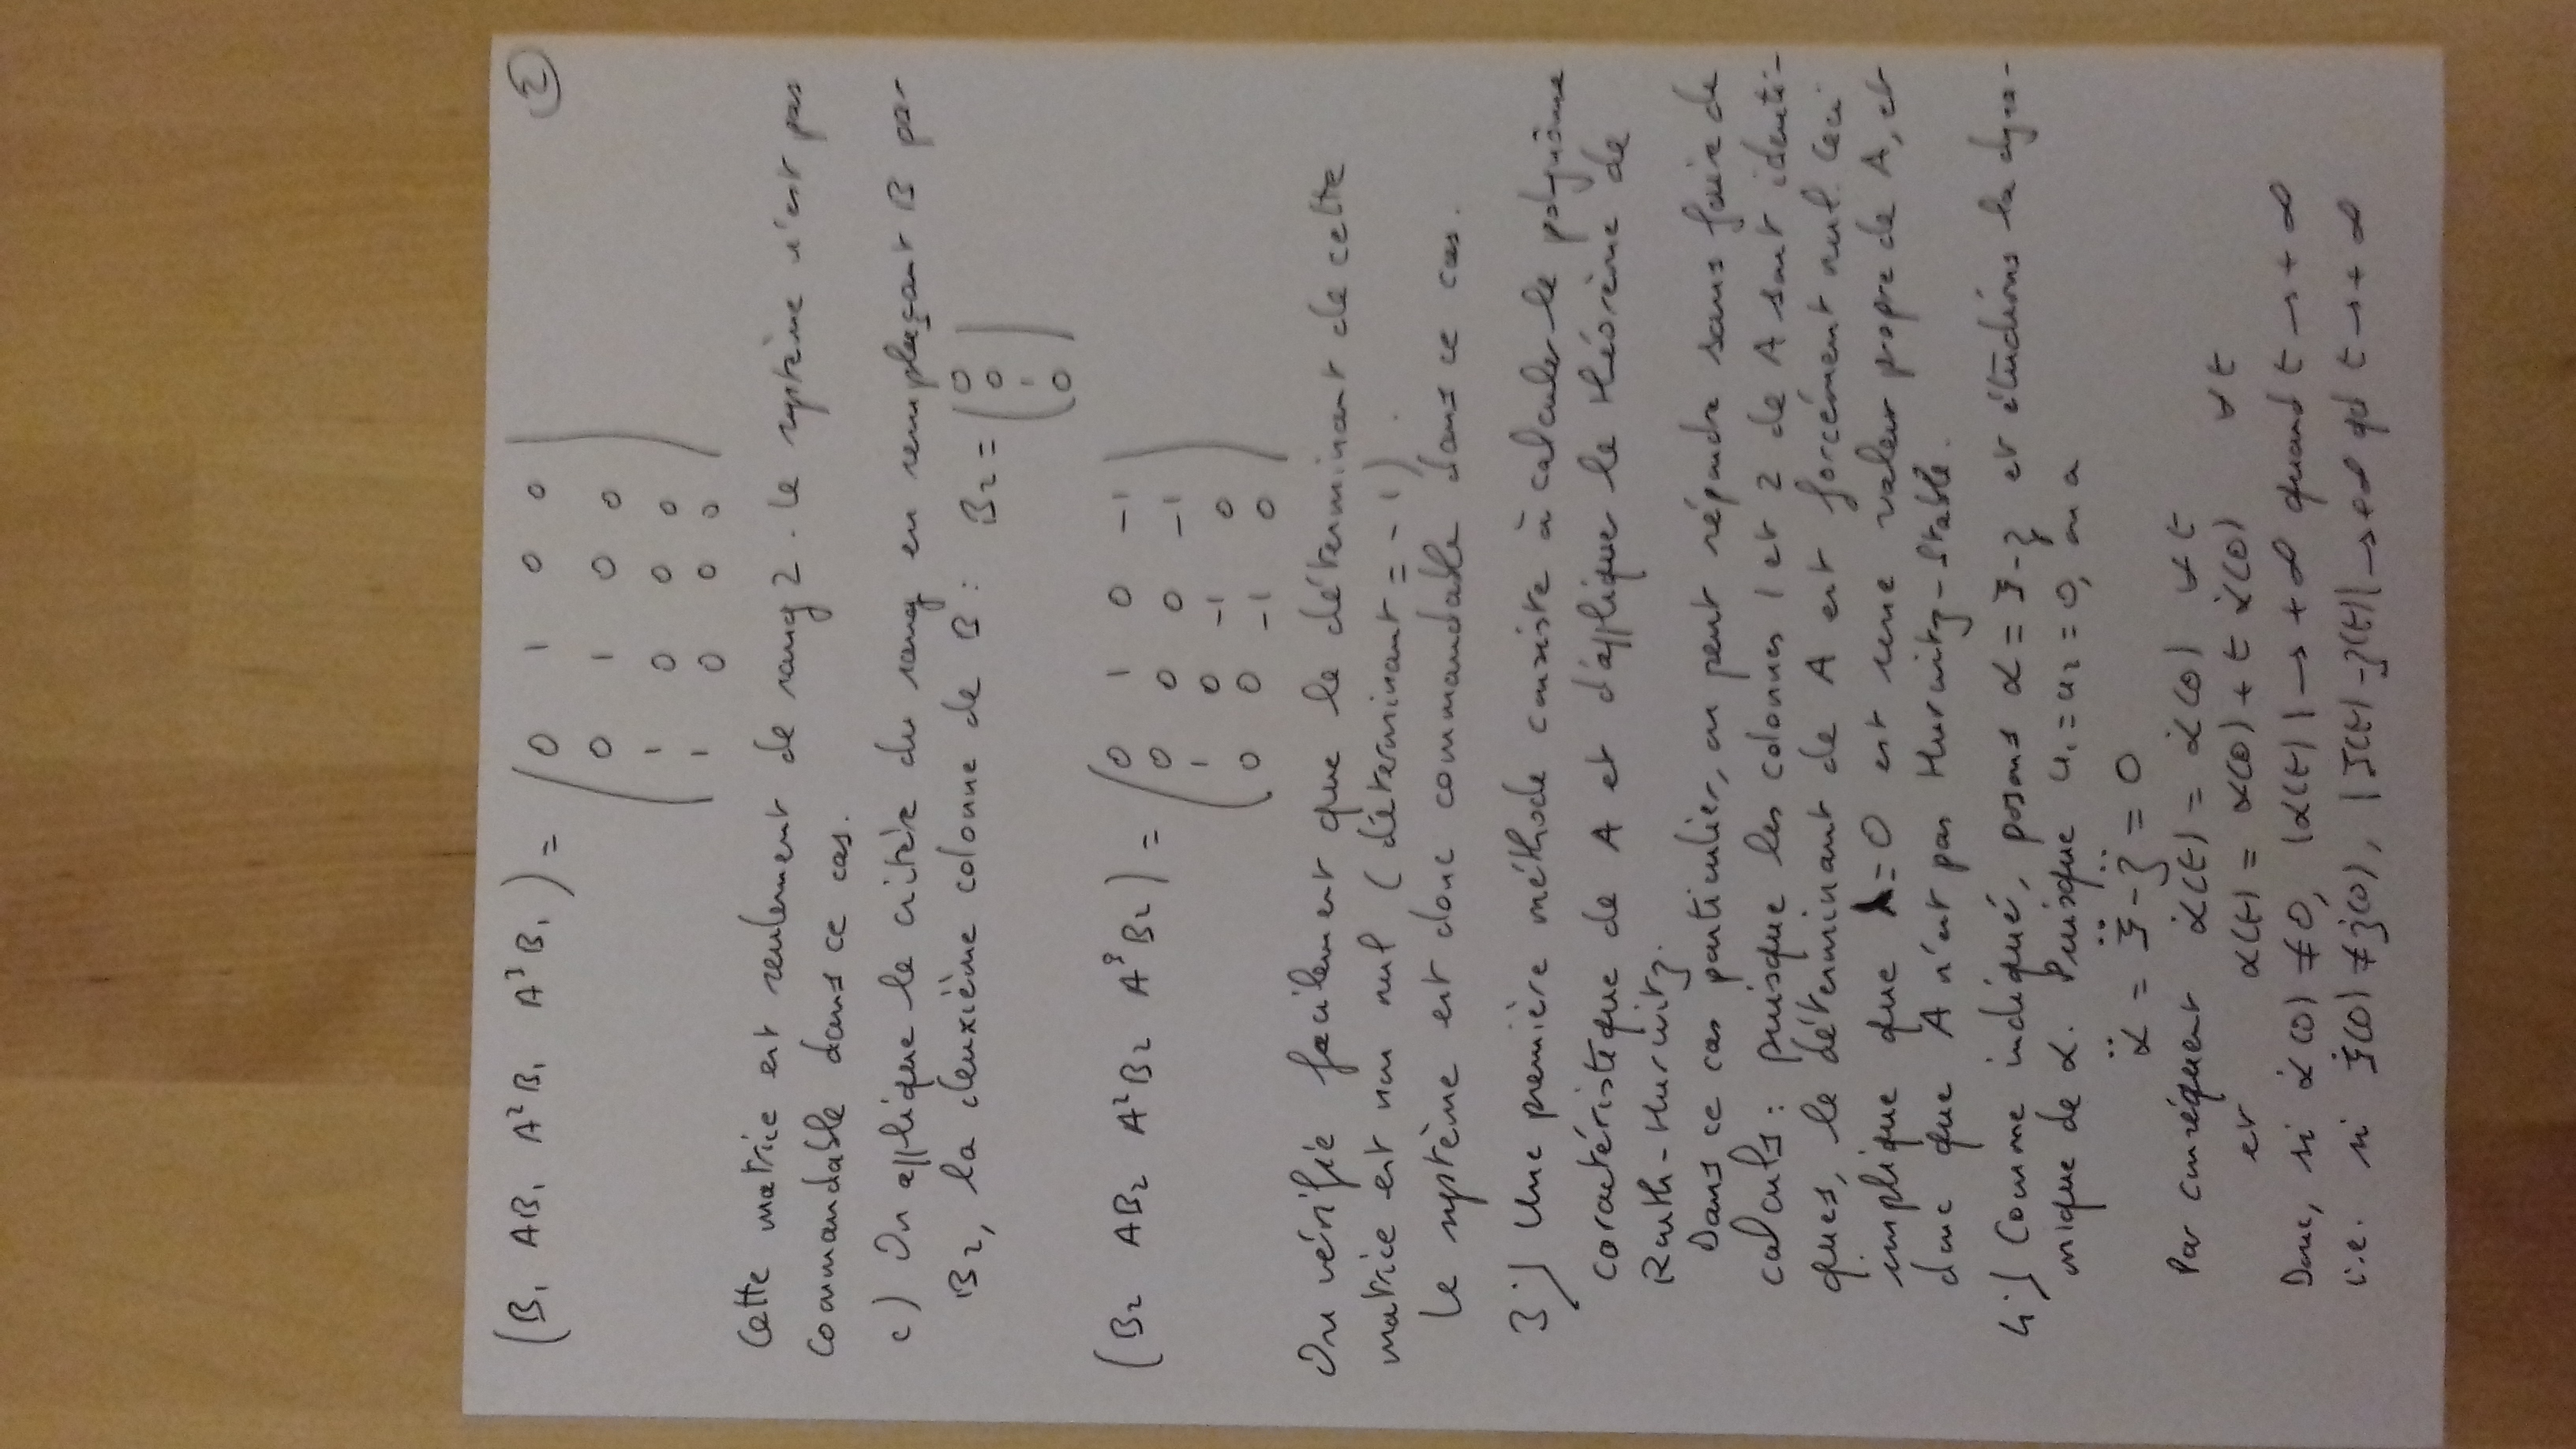 (B₁ AB₁ A²B₁ A³B₁) = ②
0 1 0 0
0 1 0 0
1 0 0 0
1 0 0 0
Cette matrice est seulement de rang 2. Le système n'est pas
commandable dans ce cas.
c) On applique le critère du rang en remplaçant B par
B₂, la deuxième colonne de B : B₂ = (0 0 1 0)
(B₂ AB₂ A²B₂ A³B₂) =
0 1 0 -1
0 0 0 -1
1 0 -1 0
0 0 -1 0
On vérifie facilement que le déterminant de cette
matrice est non nul (déterminant = -1).
Le système est donc commandable dans ce cas.
3.) Une première méthode consiste à calculer le polynôme
caractéristique de A et d'appliquer le théorème de
Routh-Hurwitz.
Dans ce cas particulier, on peut répondre sans faire de
calculs : puisque les colonnes 1 et 2 de A sont identi-
ques, le déterminant de A est forcément nul. Ceci
implique que λ=0 est une valeur propre de A, et
donc que A n'est pas Hurwitz-Stable.
4.) Comme indiqué, posons α = ξ-ζ et étudions la dyna-
mique de α. Puisque u₁=u₂=0, on a
α̈ = ξ̈-ζ̈ = 0
Par conséquent α̇(t) = α̇(0) ∀t
et α(t) = α(0) + t α̇(0) ∀t
Donc, si α̇(0) ≠ 0, |α(t)| → +∞ quand t → +∞
i.e. si ξ̇(0) ≠ ζ̇(0), |ξ(t)-ζ(t)| → +∞ qd t → +∞